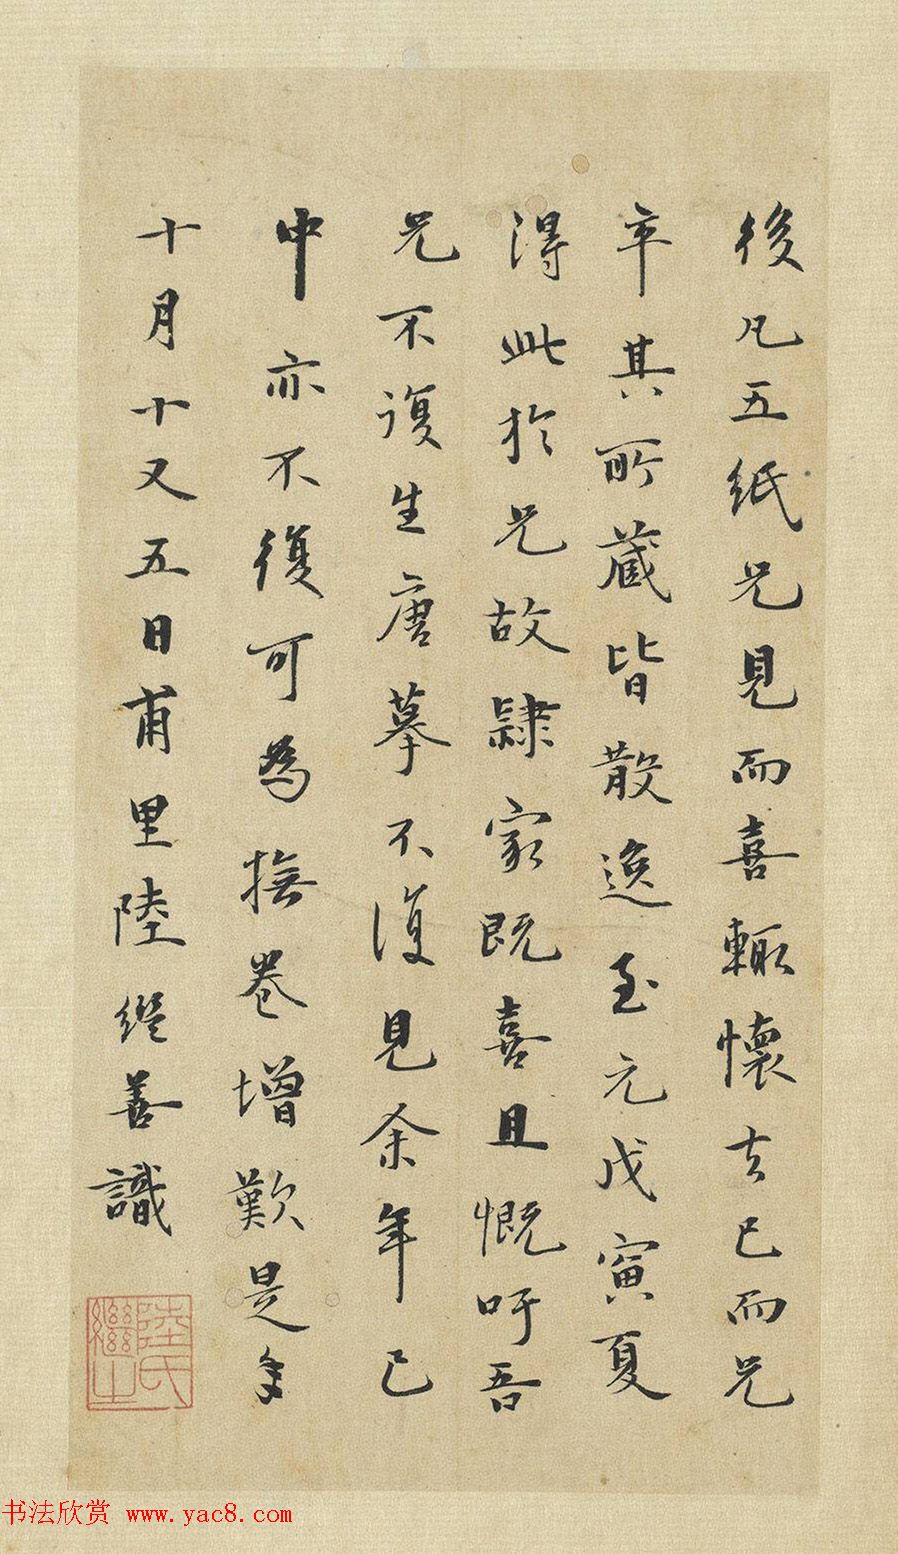 後凡五紙兄見而喜輒懷去已而兄
卒其所藏皆散逸至元戊寅夏
得此於兄故隸家既喜且慨吁吾
兄不復生唐摹不復見余年已
中亦不復可為撫卷增歎是年
十月十又五日甫里陸繼善識
陸氏
繼之
书法欣赏 www.yac8.com